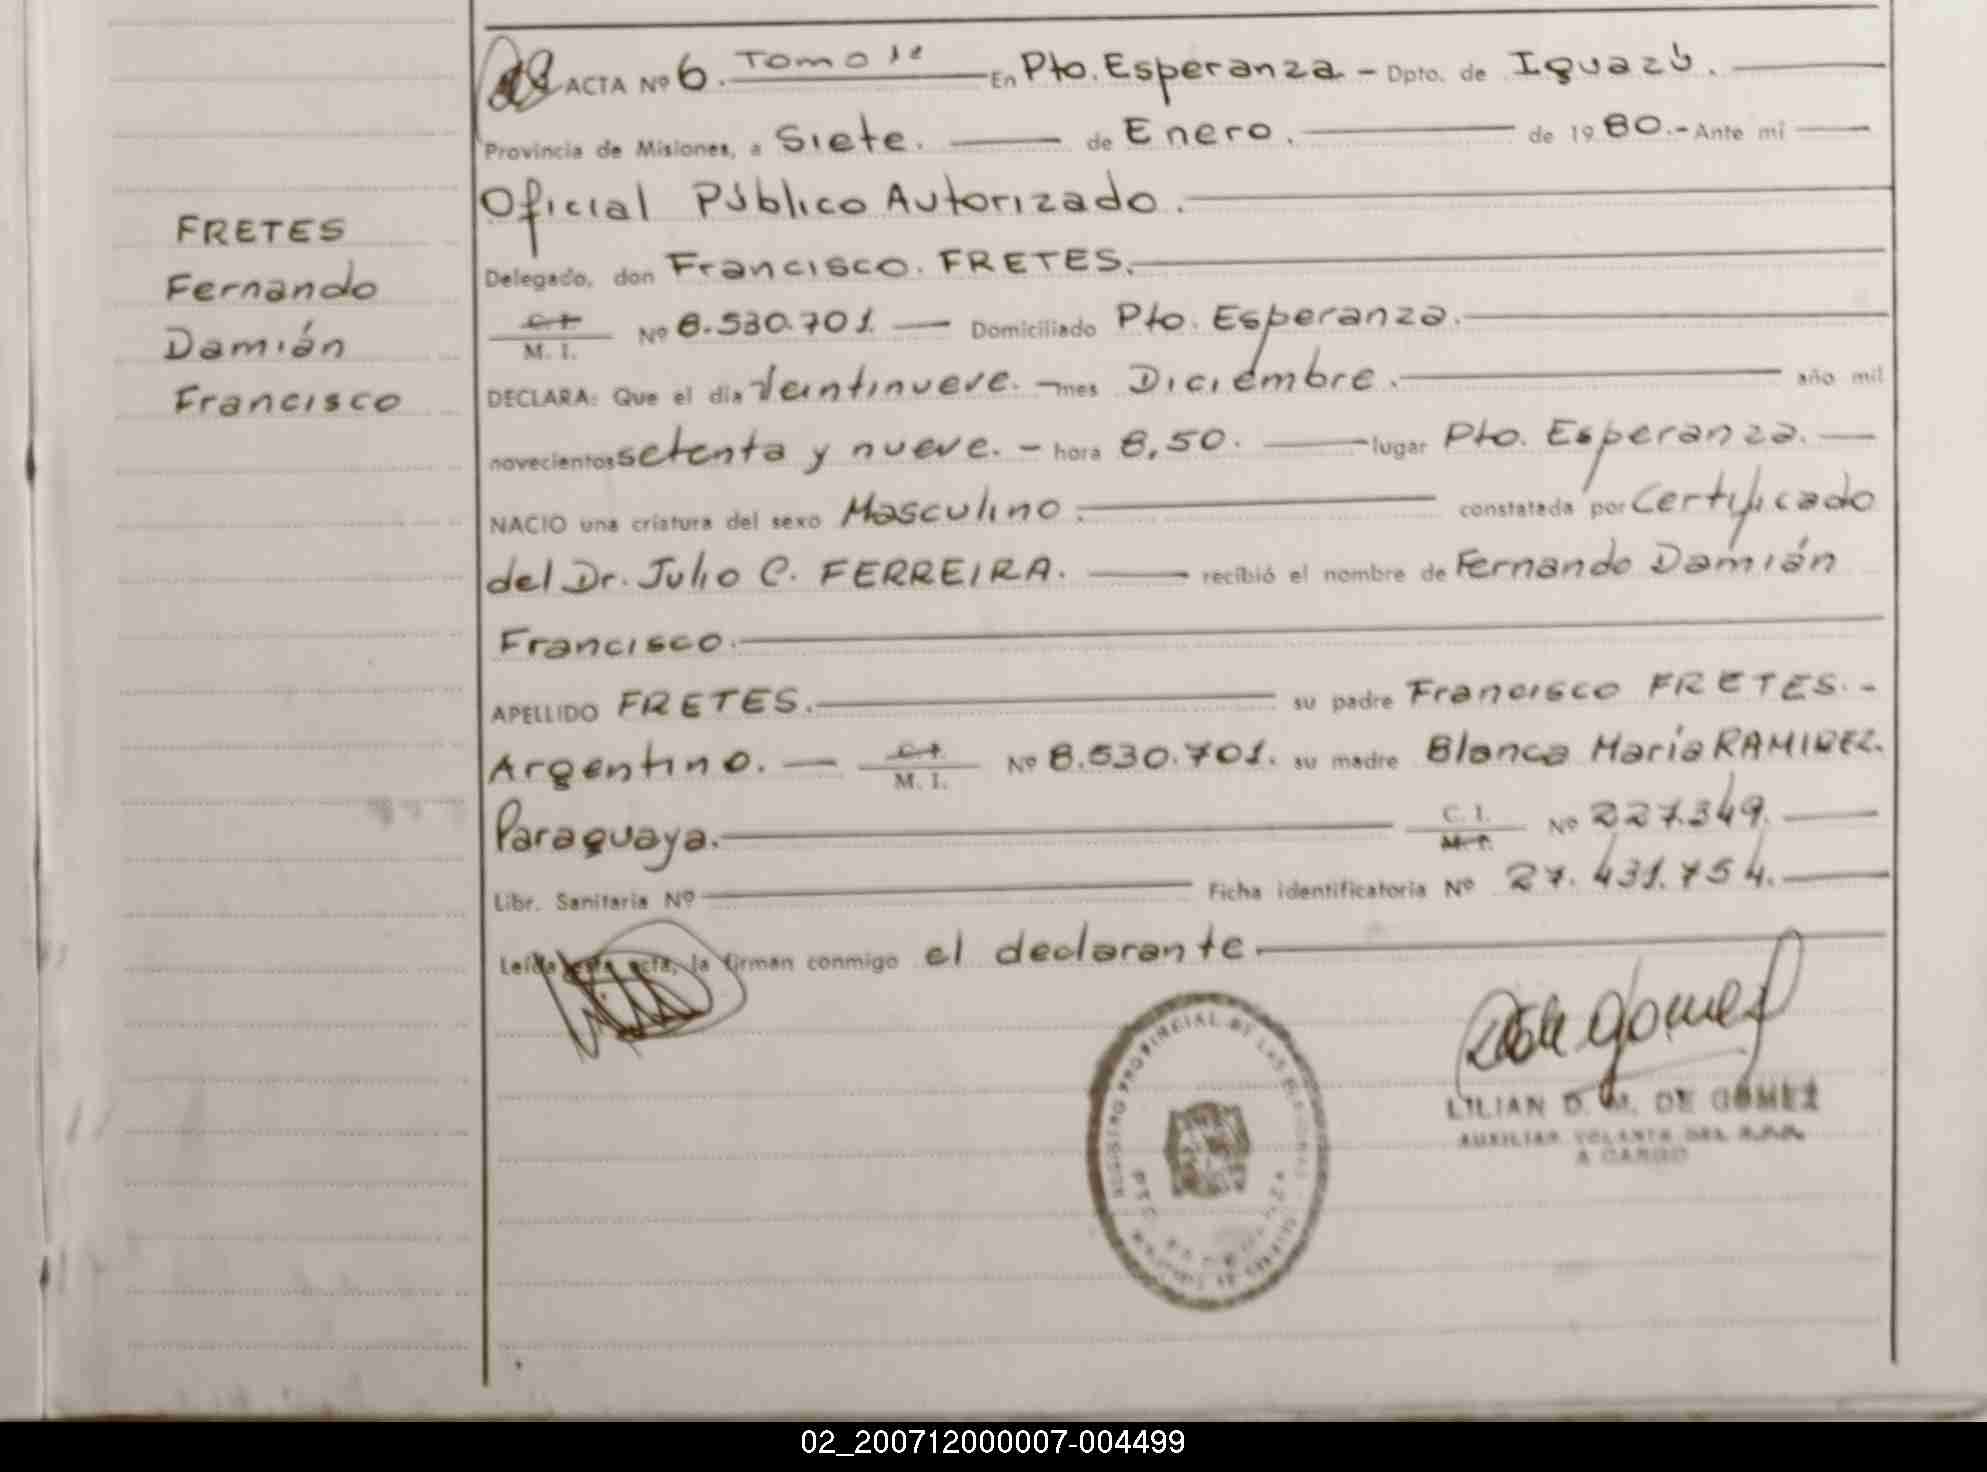 FRETES
Fernando
Damián
Francisco
ACTA Nº 6. Tomo 1º En Pto. Esperanza - Dpto. de Iguazú.
Provincia de Misiones, a Siete. de Enero. de 1980.- Ante mí
Oficial Público Autorizado.
Delegado, don Francisco. FRETES.
C. I.
M. I. Nº 8.530.701 Domiciliado Pto. Esperanza.
DECLARA: Que el día Veintinueve. - mes Diciembre. año mil
novecientos setenta y nueve. - hora 8,50. lugar Pto. Esperanza.
NACIO una criatura del sexo Masculino. constatada por Certificado
del Dr. Julio C. FERREIRA. recibió el nombre de Fernando Damián
Francisco.
APELLIDO FRETES. su padre Francisco FRETES. -
Argentino. C. I.
M. I. Nº 8.530.701. su madre Blanca María RAMIREZ.
Paraguaya. C. I.
M. I. Nº 227.349.
Libr. Sanitaria Nº Ficha identificatoria Nº 27.431.754.
Leída esta acta, la firman conmigo el declarante
REGISTRO PROVINCIAL DE LAS PERSONAS
LILIAN D. M. DE GOMEZ
AUXILIAR VOLANTE DEL R.P.P.
A CARGO
02_200712000007-004499